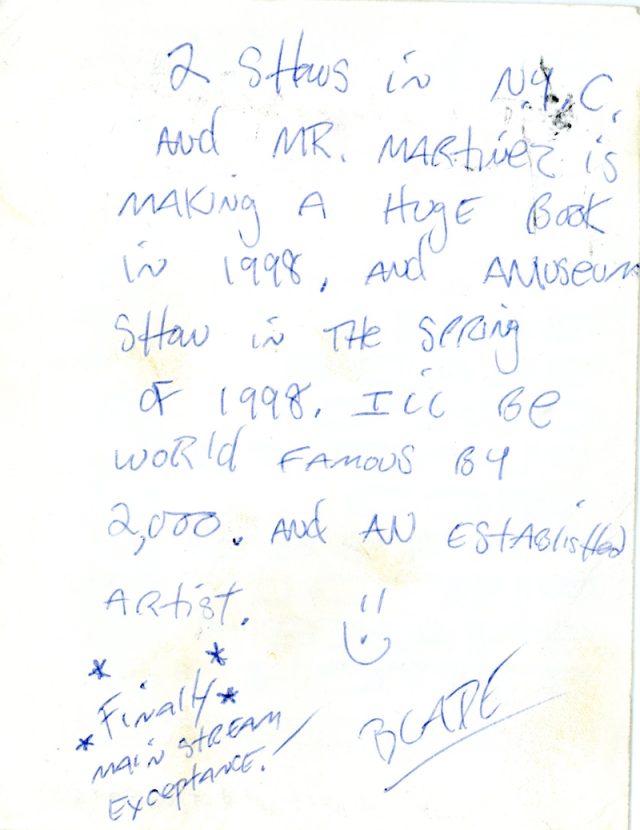 2 SHows in N.Y.C.
And MR. MARtinez is
MAKing A HUgE Book
in 1998, And AMuseum
SHow in THe SPRing
oF 1998. I'll Be
WORld FAMOUS By
2,000. And AN EStABlisHed
ARtist.
* * Finally *
* MAin StREAM
EXceptance!
BLADE